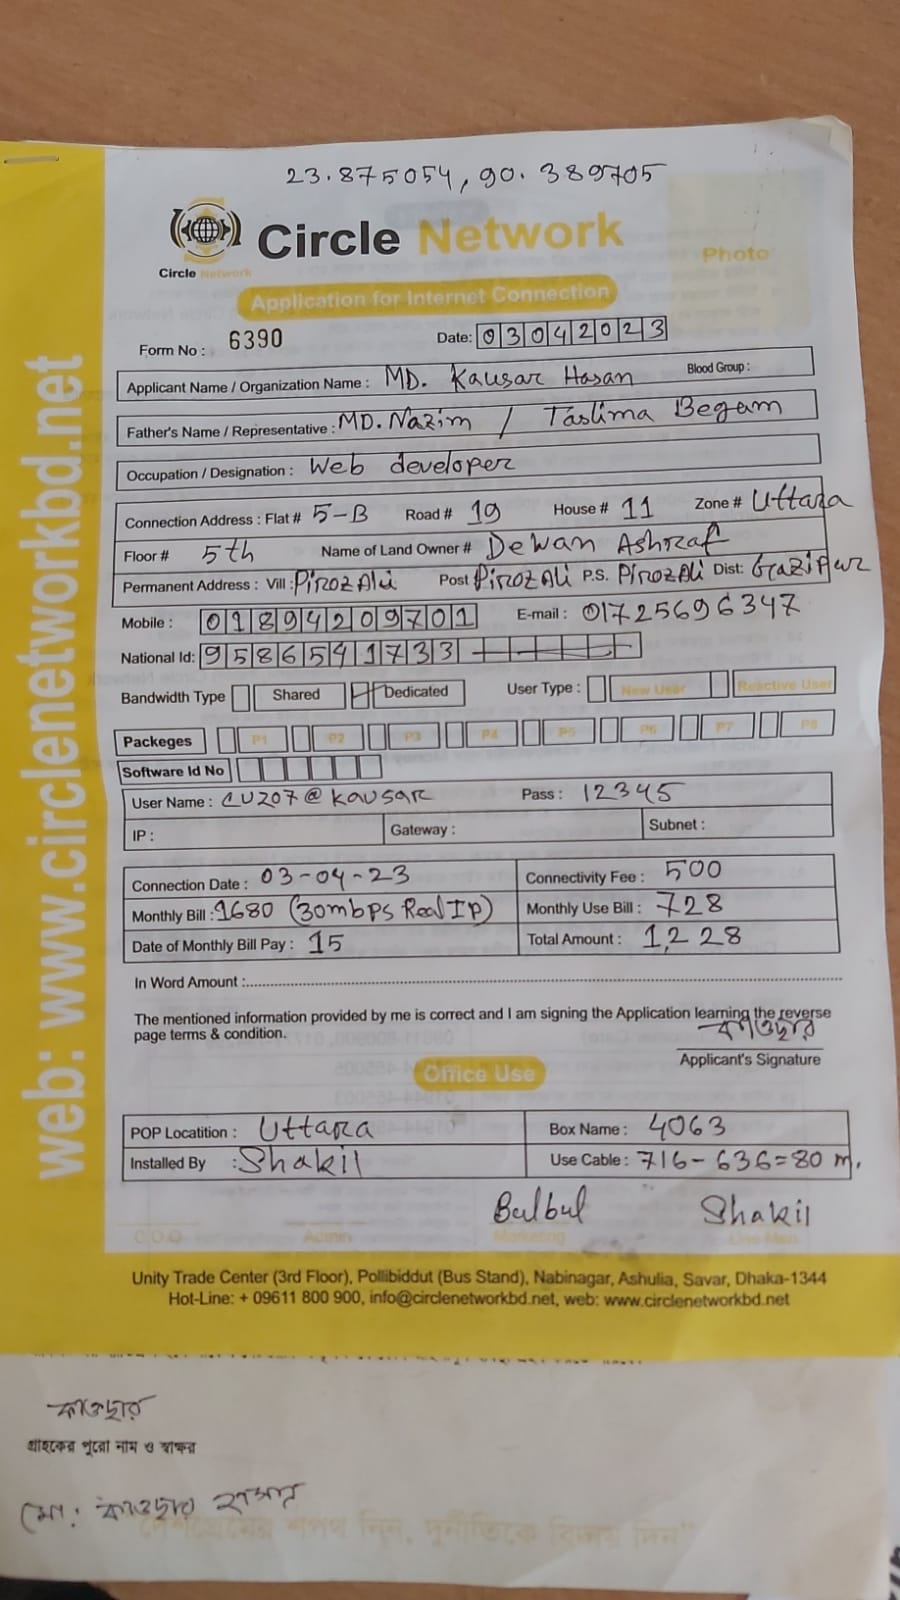 23.875054, 90.389705
Circle Network
Circle Network
Photo
Application for Internet Connection
Form No : 6390 Date: 03042023
Applicant Name / Organization Name : MD. Kausar Hasan Blood Group :
Father's Name / Representative : MD. Nazim / Taslima Begam
Occupation / Designation : Web developer
Connection Address : Flat # 5-B Road # 19 House # 11 Zone # Uttara
Floor # 5th Name of Land Owner # Dewan Ashraf
Permanent Address : Vill : PirozAli Post PirozAli P.S. PirozAli Dist: Gazipur
Mobile : 01894209701 E-mail : 01725696347
National Id: 9586541733
Bandwidth Type Shared Dedicated User Type : New User Reactive User
Packeges P1 P2 P3 P4 P5 P6 P7 P8
Software Id No
User Name : CU207@kausar Pass : 12345
IP : Gateway : Subnet :
Connection Date : 03-04-23 Connectivity Fee : 500
Monthly Bill : 1680 (30mbps Real Ip) Monthly Use Bill : 728
Date of Monthly Bill Pay : 15 Total Amount : 1228
In Word Amount :
The mentioned information provided by me is correct and I am signing the Application learning the reverse
page terms & condition.
কাওছার
Applicant's Signature
Office Use
POP Locatition : Uttara Box Name : 4063
Installed By : Shakil Use Cable : 716-636=80 m.
Bulbul Shakil
C.O.O Admin Marketing Line Man
Unity Trade Center (3rd Floor), Pollibiddut (Bus Stand), Nabinagar, Ashulia, Savar, Dhaka-1344
Hot-Line: + 09611 800 900, info@circlenetworkbd.net, web: www.circlenetworkbd.net
web: www.circlenetworkbd.net
কাওছার
গ্রাহকের পুরো নাম ও স্বাক্ষর
মো: কাওছার হাসান
"দেশপ্রেমের শপথ নিন, দুর্নীতিকে বিদায় দিন"